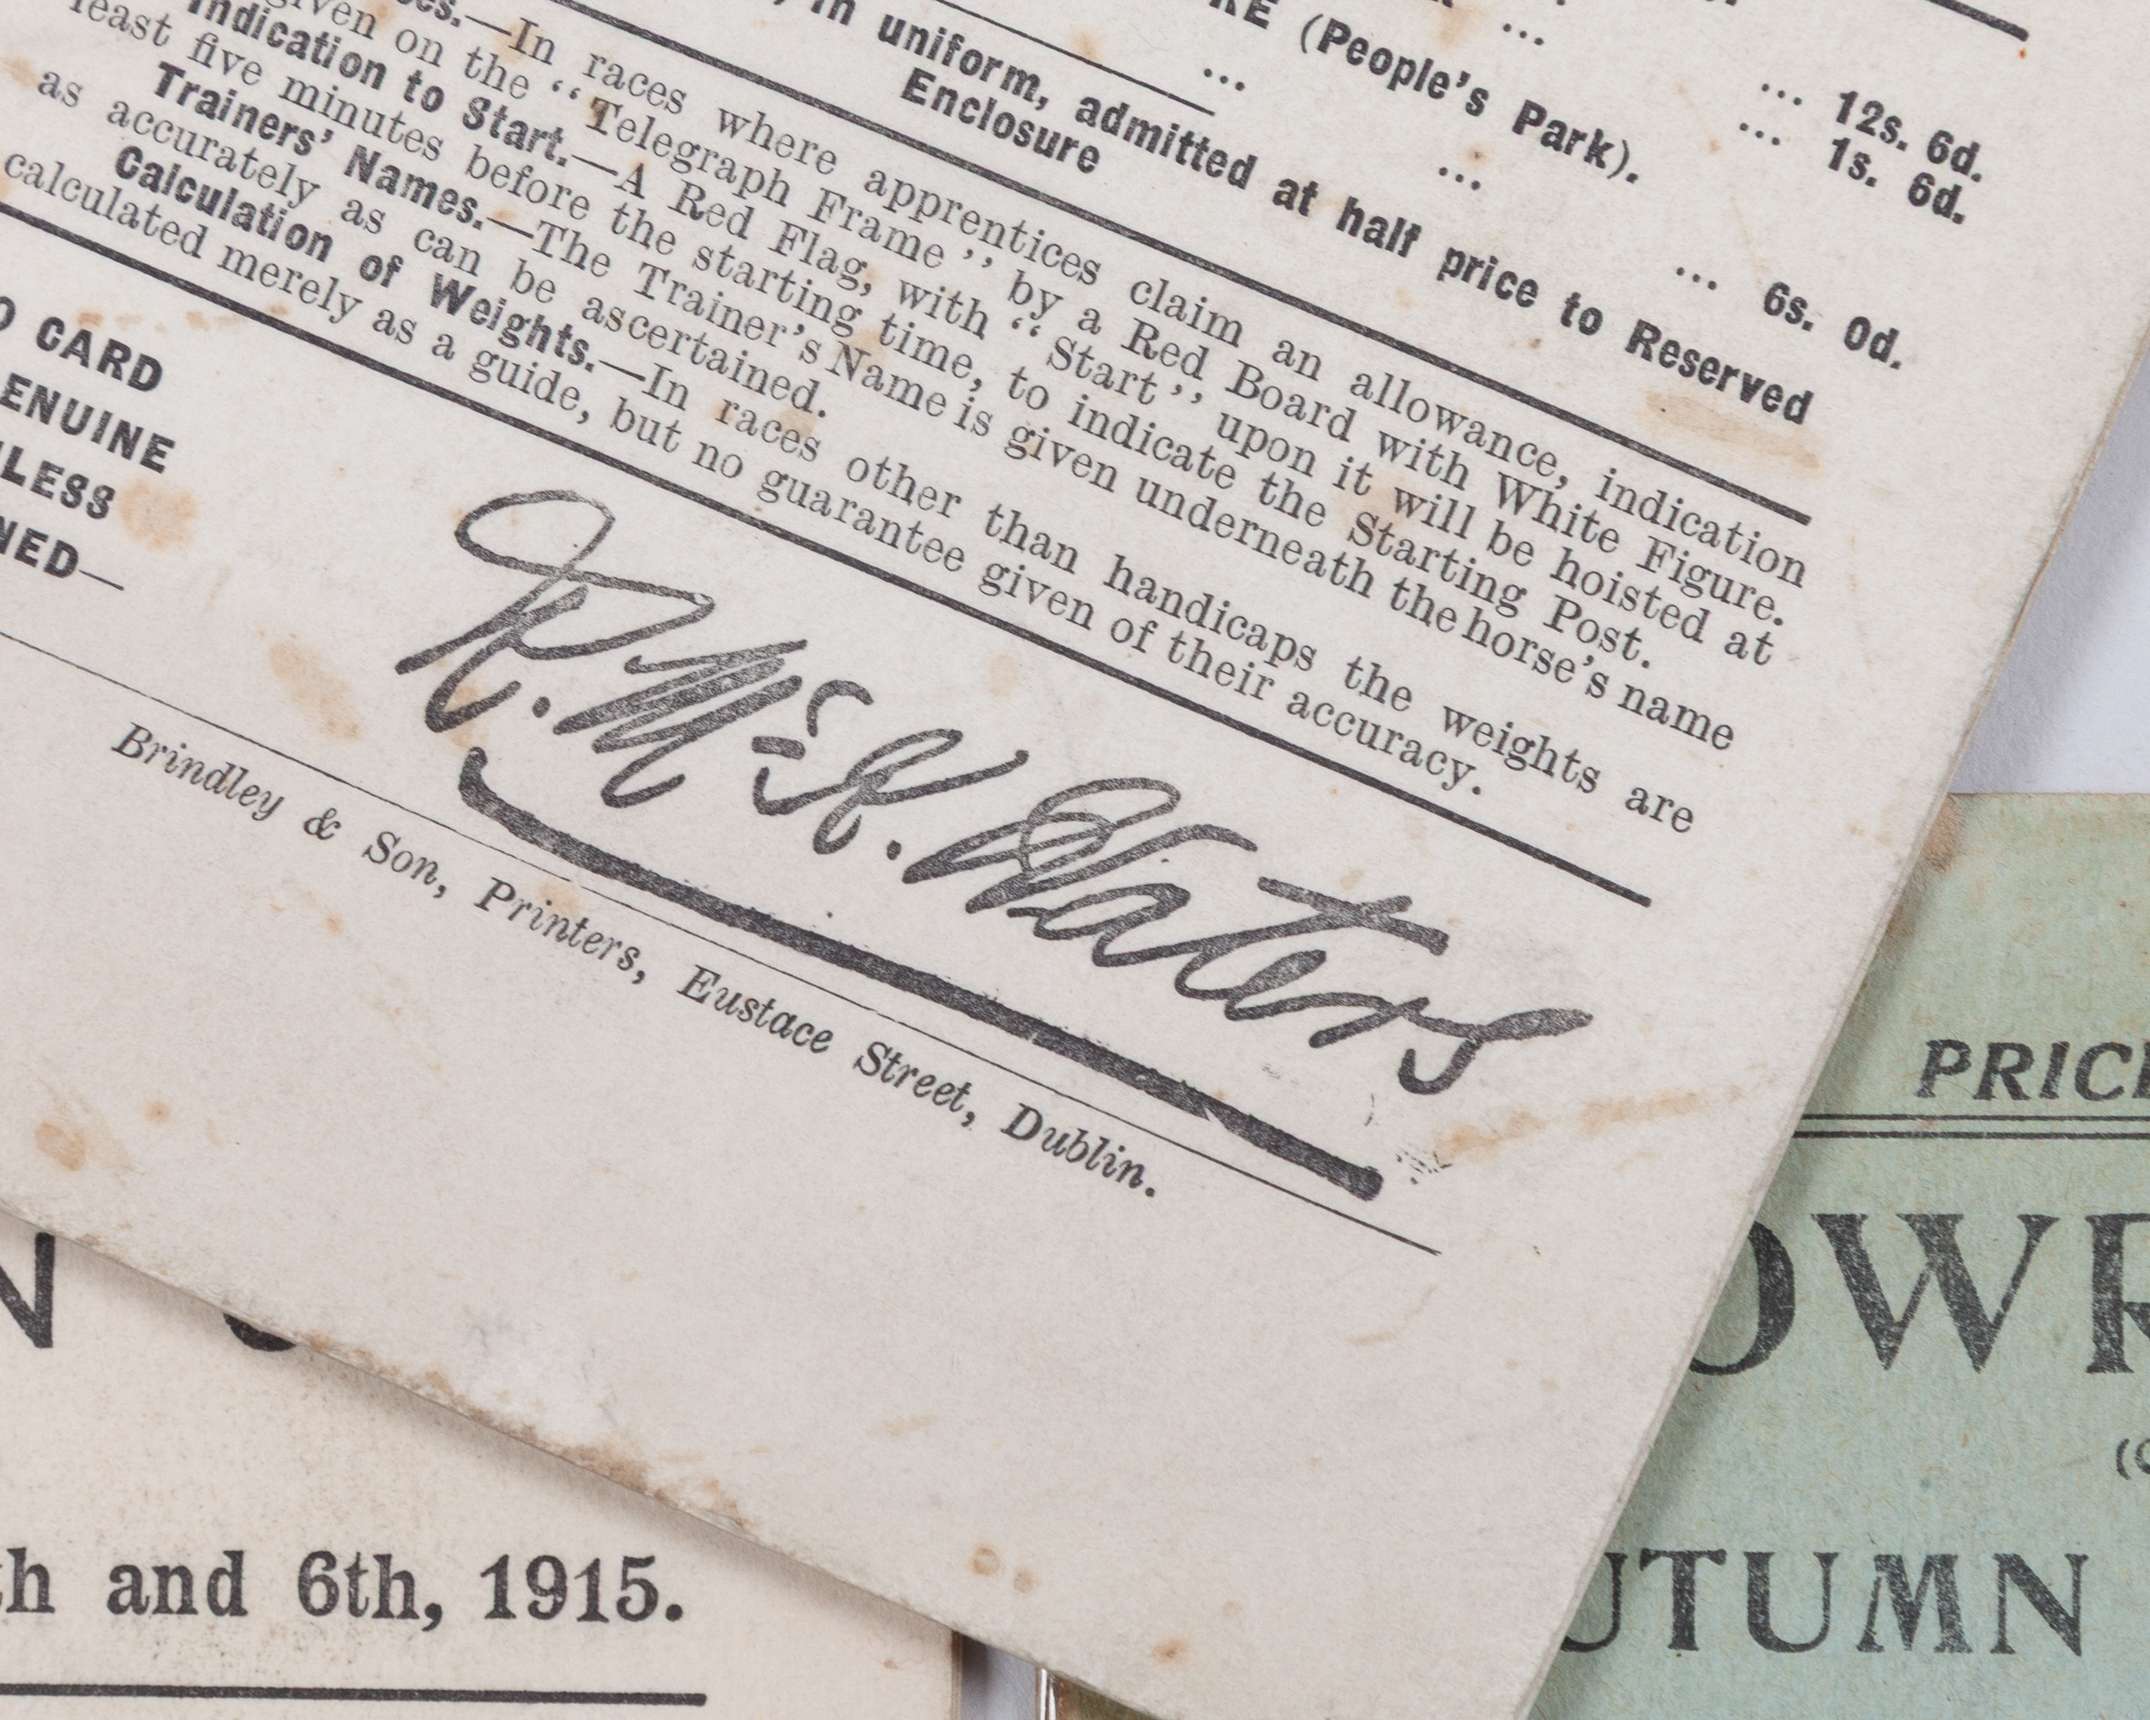 ... 12s. 6d.
... 1s. 6d.
(People's Park).
... ... 6s. 0d.
in uniform, admitted at half price to Reserved
Enclosure
In races where apprentices claim an allowance, indication
given on the "Telegraph Frame" by a Red Board with White Figure.
Indication to Start.—A Red Flag, with "Start" upon it will be hoisted at
least five minutes before the starting time, to indicate the Starting Post.
Trainers' Names.—The Trainer's Name is given underneath the horse's name
as accurately as can be ascertained.
Calculation of Weights.—In races other than handicaps the weights are
calculated merely as a guide, but no guarantee given of their accuracy.
CARD
ENUINE
LESS
NED—
R. McK. Waters
Brindley & Son, Printers, Eustace Street, Dublin.
th and 6th, 1915.
PRICE
OWR
UTUMN